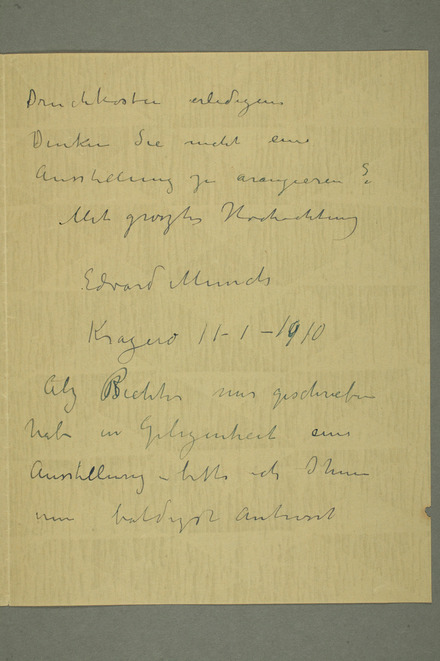 Druckkosten erledigen
Denken Sie nicht eine
Ausstellung zu arangieren?
Mit groszter Hochachtung
Edvard Munch
Kragerø 11-1-1910
Richter mir geschrieben
habe in Gelegenheit eine
Ausstellung – bitte ich Ihnen
um baldigst Antwort